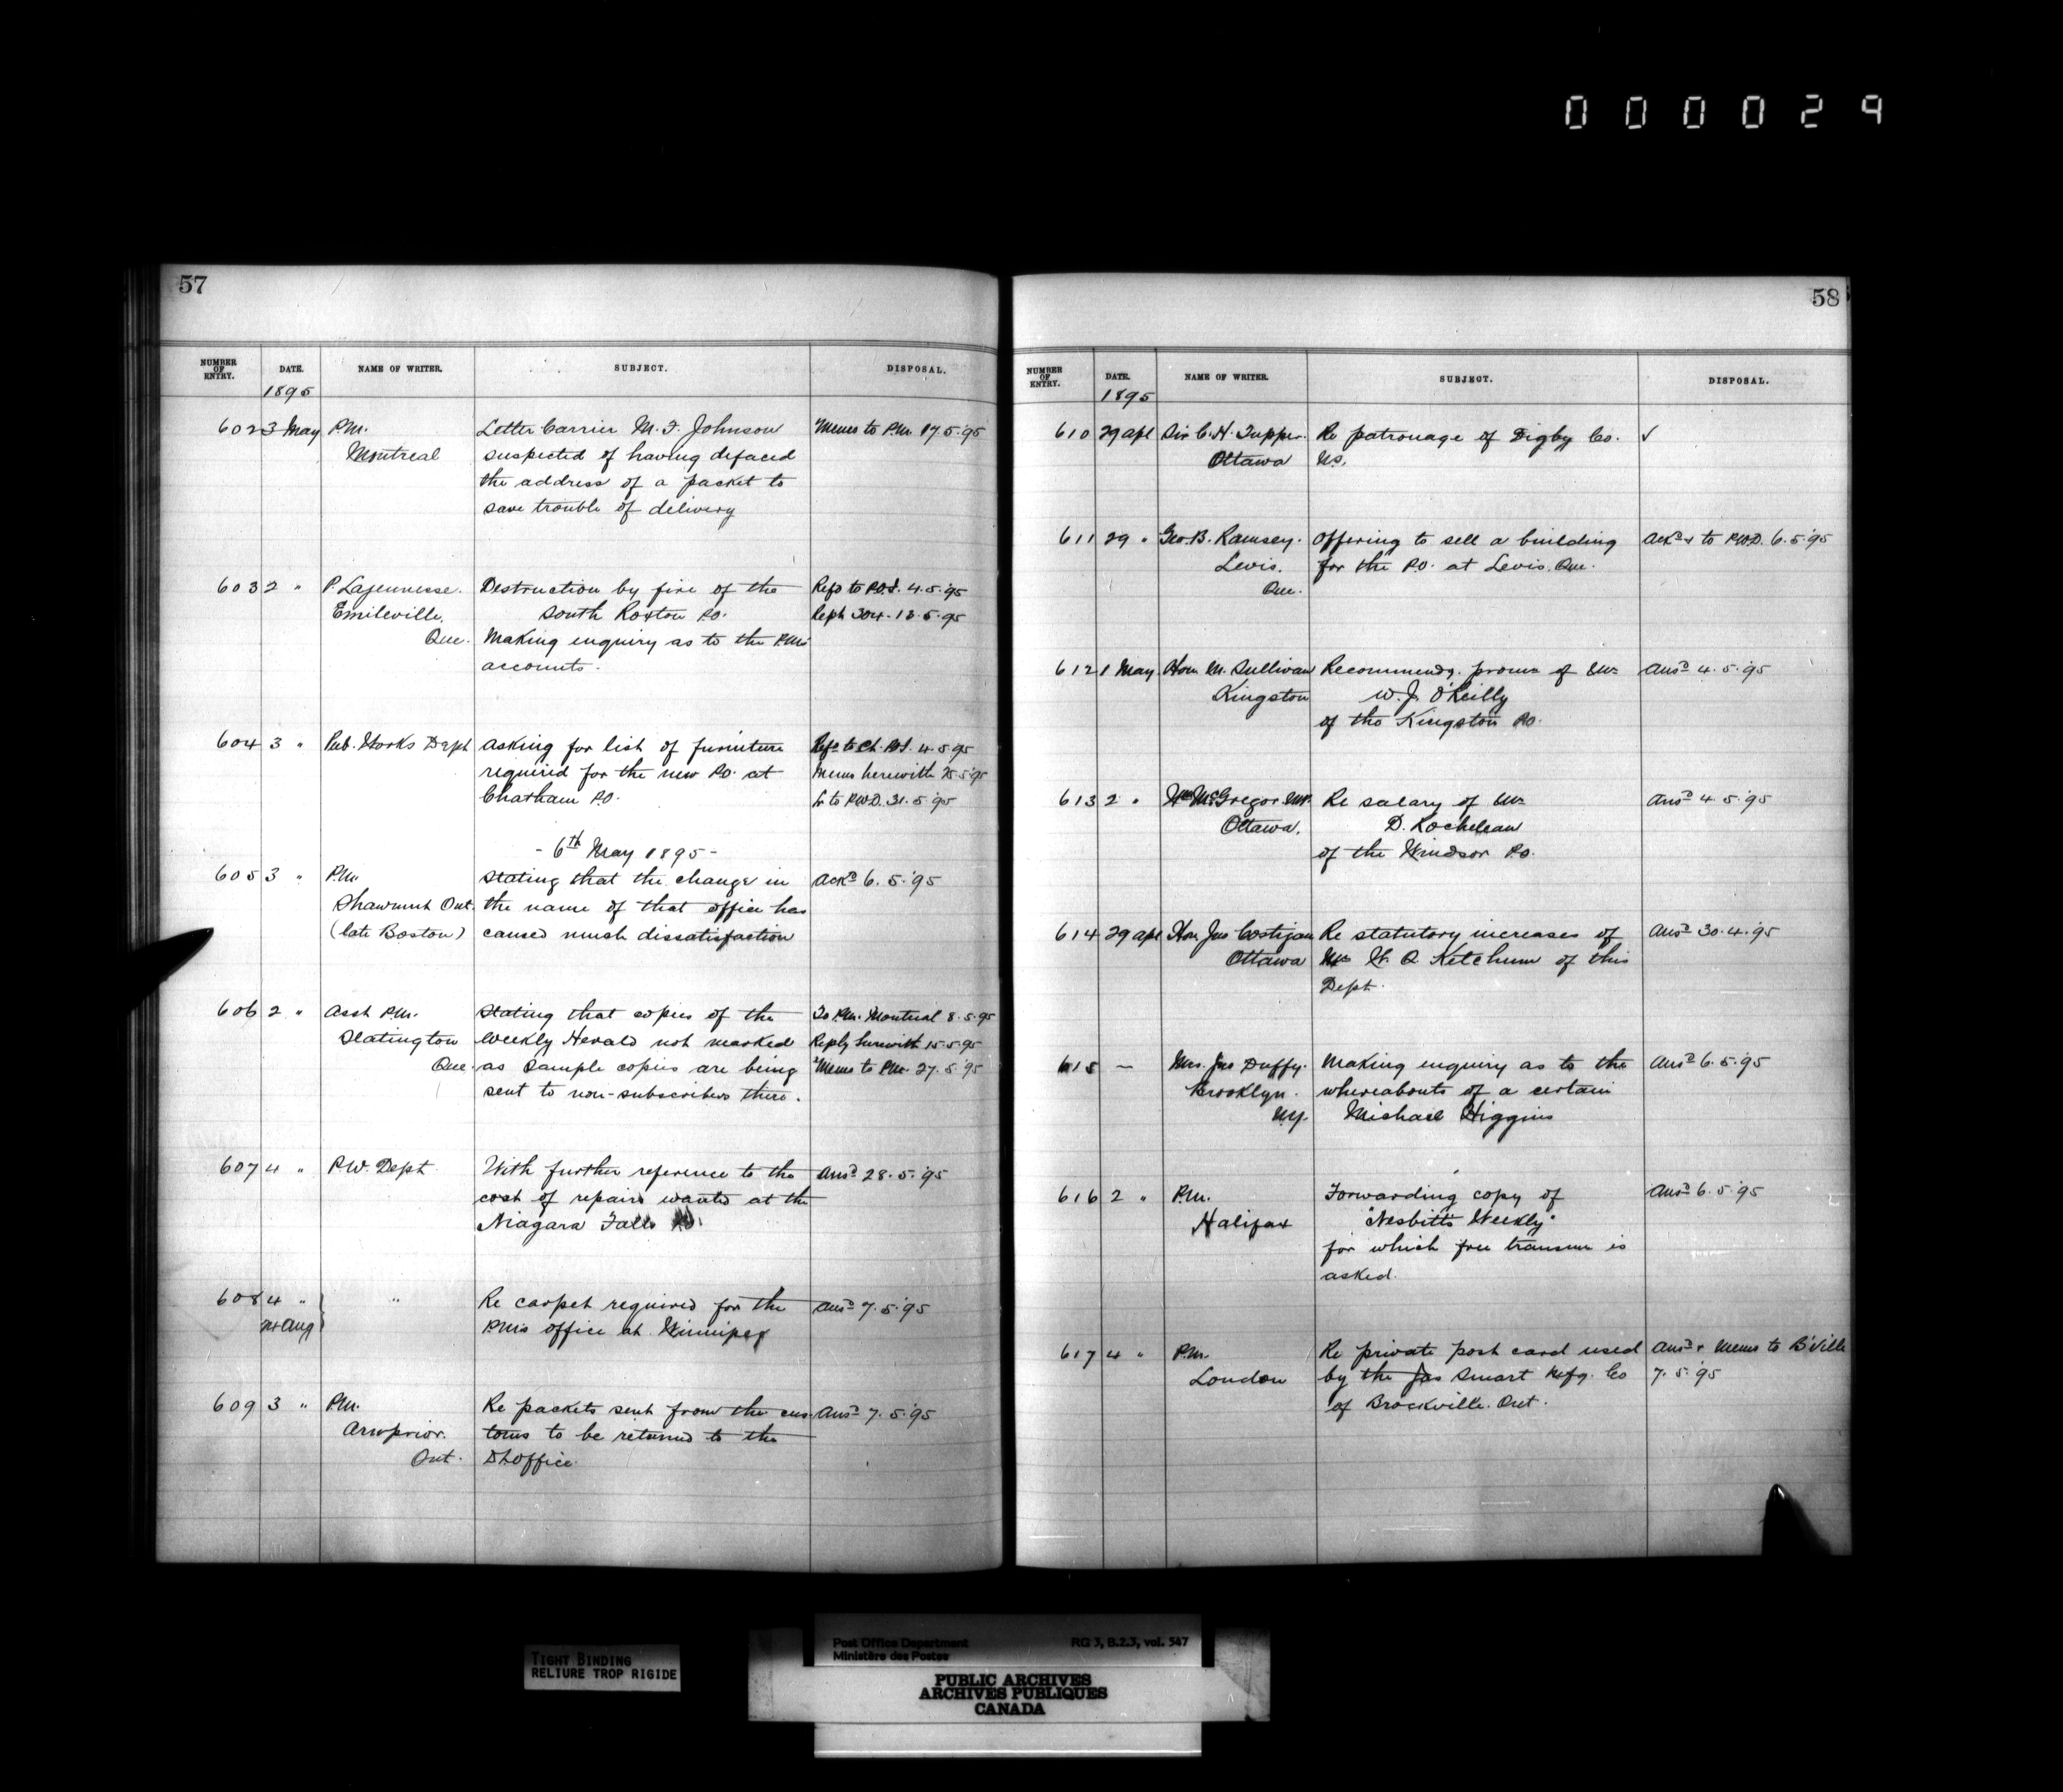 000029
57
NUMBER OF ENTRY. DATE. NAME OF WRITER. SUBJECT. DISPOSAL.
1895
602 3 May P.M. Letter Carrier M. F. Johnson Memo to P.M. 17.5.95
Montreal suspected of having defaced
the address of a packet to
save trouble of delivery
603 2 " P. Lajeunesse. Destruction by fire of the Refd to P.O.I. 4.5.'95
Emileville, South Roxton P.O. Reph 304. 13.5.95
Que. Making enquiry as to the P.M's
accounts.
604 3 " Pub. Works Dept Asking for list of furniture Refd to Ch. P.O.I. 4.5.95
required for the new P.O. at Memo herewith 25.5.95
Chatham P.O. Lr to P.W.D. 31.5.95
- 6th May 1895 -
605 3 " P.M. Stating that the change in Ackd 6.5.'95
Shawmut Ont. the name of that office has
(late Boston) caused much dissatisfaction
606 2 " Asst P.M. Stating that copies of the To P.M. Montreal 8.5.95
Slatington Weekly Herald not marked Reply herewith 15.5.95
Que. as Sample copies are being Memo to P.M. 27.5.95
sent to non-subscribers there.
607 4 " P.W. Dept. With further reference to the Ansd 28.5.'95
cost of repairs wanted at the
Niagara Falls P.O.
608 4 " " Re carpet required for the Ansd 7.5.'95
Aug P.M's office at Winnipeg
609 3 " P.M. Re packets sent from the cus- Ansd 7.5.'95
Arnprior. toms to be returned to the
Ont. D.L. Office.
58
NUMBER OF ENTRY. DATE. NAME OF WRITER. SUBJECT. DISPOSAL.
1895
610 29 Apl Sir C. H. Tupper. Re patronage of Digby Co. ✓
Ottawa N.S.
611 29 " Geo. B. Ramsey. Offering to sell a building Ackd & to P.W.D. 6.5.'95
Levis. for the P.O. at Levis. Que.
Que.
612 1 May Hon. M. Sullivan Recommendg. promn of Mr Ansd 4.5.'95
Kingston W. J. O'Reilly
of the Kingston P.O.
613 2 " Wm McGregor M.P. Re salary of Mr Ansd 4.5.'95
Ottawa. D. Rocheleau
of the Windsor P.O.
614 29 Apl Hon. Jno Costigan Re statutory increases of Ansd 30.4.'95
Ottawa Mr W. Q. Ketchum of this
Dept.
615 — Mrs. Jas Duffy. Making enquiry as to the Ansd 6.5.'95
Brooklyn. whereabouts of a certain
N.Y. Michael Higgins
616 2 " P.M. Forwarding copy of Ansd 6.5.'95
Halifax "Nesbitt's Weekly"
for which free transmn is
asked.
617 4 " P.M. Re private post card used Ansd & Memo to B'Ville
London by the Jas Smart Mfg. Co 7.5.'95
of Brockville. Ont.
TIGHT BINDING
RELIURE TROP RIGIDE
Post Office Department RG 3, B.2.3, vol. 547
Ministère des Postes
PUBLIC ARCHIVES
ARCHIVES PUBLIQUES
CANADA